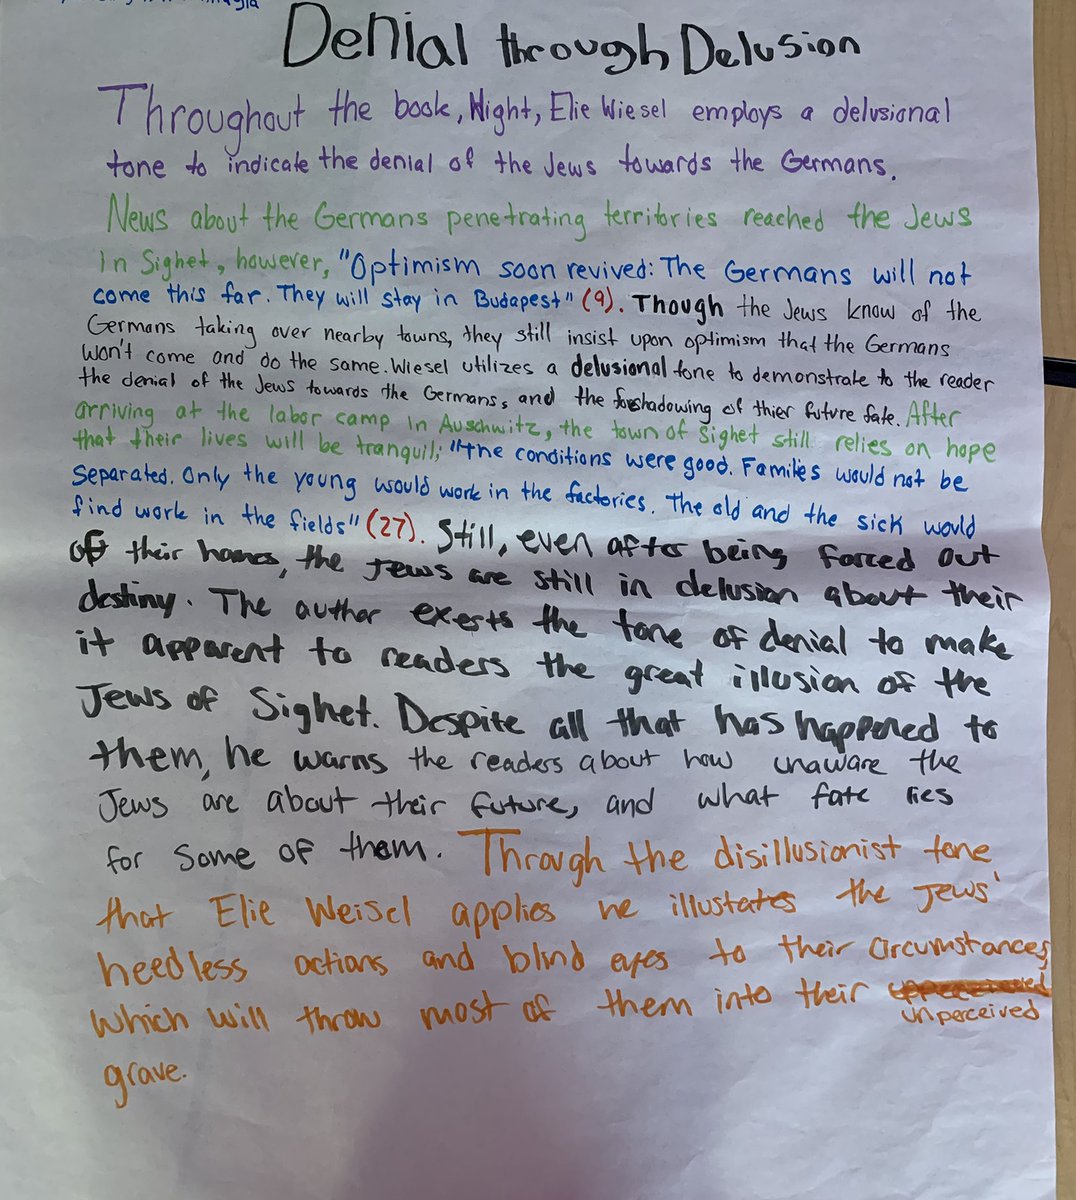 Denial through Delusion
Throughout the book, Night, Elie Wiesel employs a delusional
tone to indicate the denial of the Jews towards the Germans.
News about the Germans penetrating territories reached the Jews
in Sighet, however, "Optimism soon revived: The Germans will not
come this far. They will stay in Budapest" (9). Though the Jews know of the
Germans taking over nearby towns, they still insist upon optimism that the Germans
won't come and do the same. Wiesel utilizes a delusional tone to demonstrate to the reader
the denial of the Jews towards the Germans, and the foreshadowing of thier future fate. After
arriving at the labor camp in Auschwitz, the town of Sighet still relies on hope
that their lives will be tranquil; "The conditions were good. Families would not be
separated. Only the young would work in the factories. The old and the sick would
find work in the fields" (27). Still, even after being forced out
of their homes, the Jews are still in delusion about their
destiny. The author exerts the tone of denial to make
it apparent to readers the great illusion of the
Jews of Sighet. Despite all that has happened to
them, he warns the readers about how unaware the
Jews are about their future, and what fate lies
for some of them. Through the disillusionist tone
that Elie Weisel applies he illustates the Jews'
heedless actions and blind eyes to their circumstances,
which will throw most of them into their
unperceived
grave.